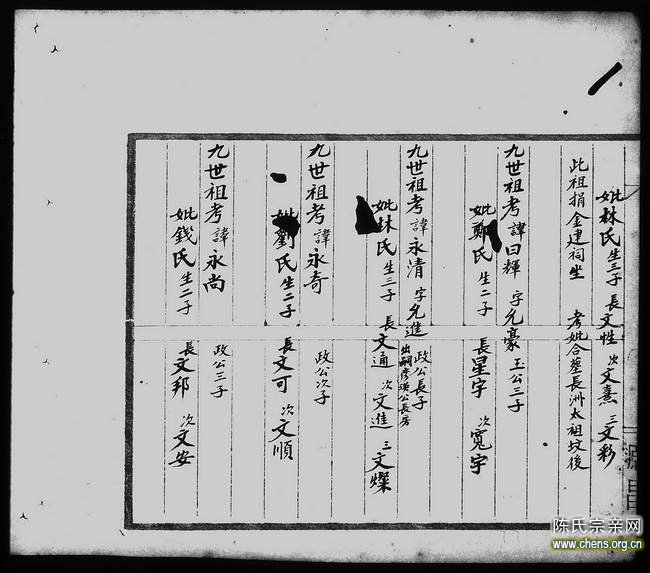 妣林氏 生三子 長文性 次文熹 三文彩
此祖捐金建祠坐 考妣合墓長洲太祖坟後
九世祖考 諱曰輝 字允豪 玉公三子
妣鄭氏 生二子 長星宇 次寬宇
九世祖考 諱永清 字允進 政公長子
公長房
妣林氏 生三子 長文通 次文進 三文燦
九世祖考 諱永奇 政公次子
妣劉氏 生二子 長文可 次文順
九世祖考 諱永尚 政公三子
妣錢氏 生二子 長文邦 次文安
陈氏宗亲网
www.chens.org.cn